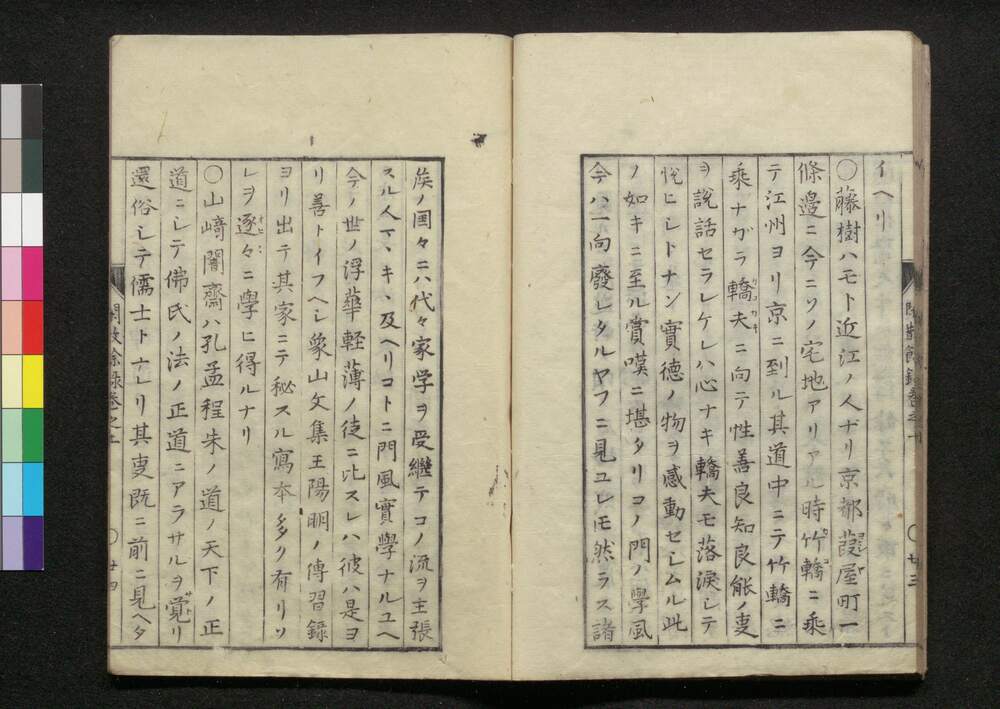 イヘリ
〇藤樹ハモト近江ノ人ナリ京都葭屋町一
條邊ニ今ニソノ宅地アリアル時竹轎ニ乘
テ江州ヨリ京ニ到ル其道中ニテ竹轎ニ
乘ナガラ轎夫ニ向テ性善良知良能ノ叓
ヲ説話セラレケレハ心ナキ轎夫モ落淚シテ
悦ヒシトナン實德ノ物ヲ感動セシムル此
ノ如キニ至ル賞嘆ニ堪タリコノ門ノ學風
今ハ一向廢レタルヤフニ見ユレモ然ラス諸
矦ノ国々ニハ代々家学ヲ受繼テコノ流ヲ主張
スル人マヽキヽ及ヘリコトニ門風實學ナルユヘ
今ノ世ノ浮華軽薄ノ徒ニ比スレハ彼ハ是ヨ
リ善トイフヘシ象山文集王陽明ノ傳習録
ヨリ出テ其家ニテ秘スル寫本多ク有リソ
レヲ逐々ニ學ヒ得ルナリ
〇山﨑闇齋ハ孔孟程朱ノ道ノ天下ノ正
道ニシテ佛氏ノ法ノ正道ニアラサルヲ覚リ
還俗シテ儒士トナレリ其叓既ニ前ニ見ヘタ